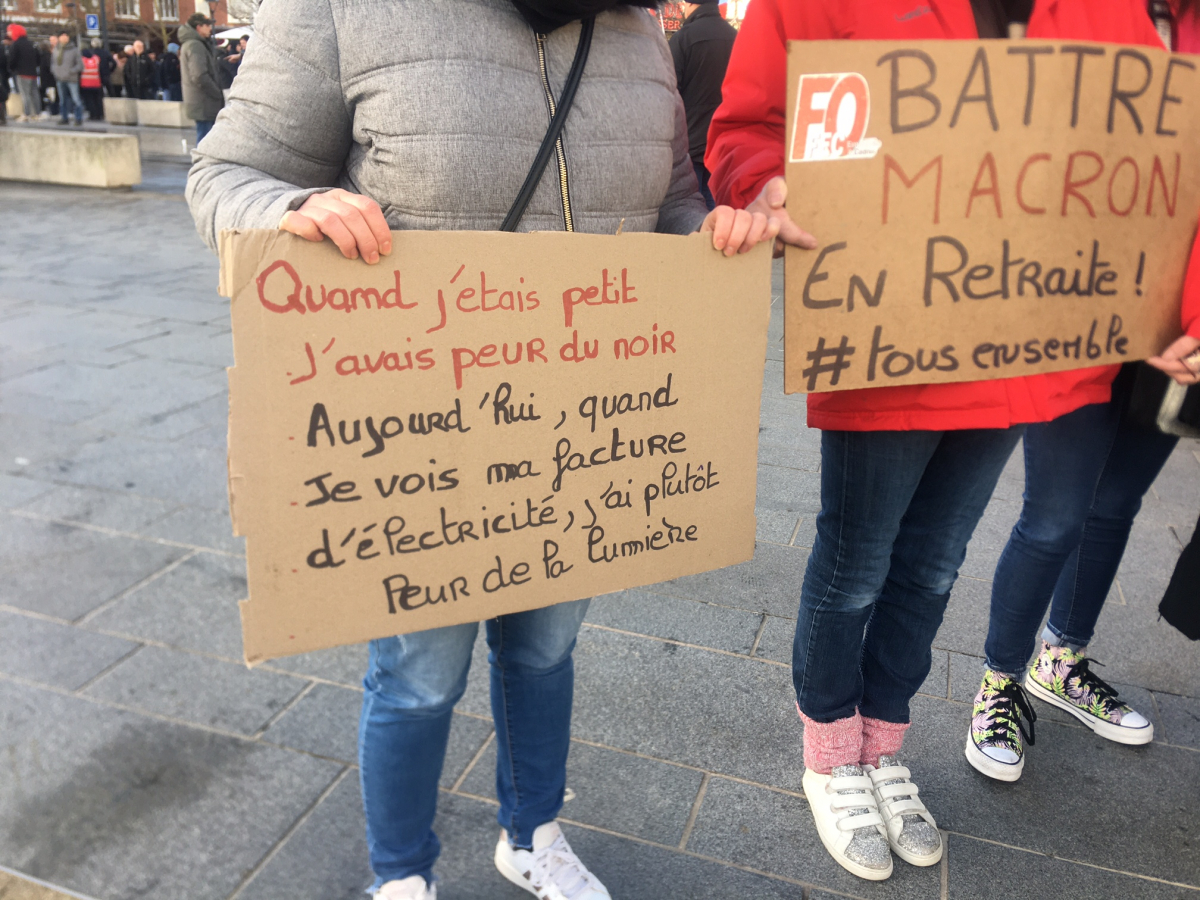 Quand j'étais petit
J'avais peur du noir
Aujourd'hui, quand
Je vois ma facture
d'électricité, j'ai plutôt
Peur de la lumière
FO
FEC
BATTRE
MACRON
En Retraite !
# tous ensemble
P